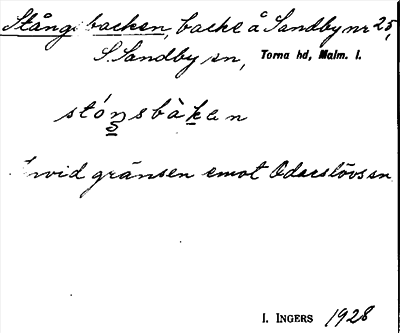 Stångsbacken, backe å Sandby nr 25,
S. Sandby sn, Torna hd, Malm. l.
stóŋsbàkan
invid gränsen emot Odarslövs sn
I. INGERS 1928